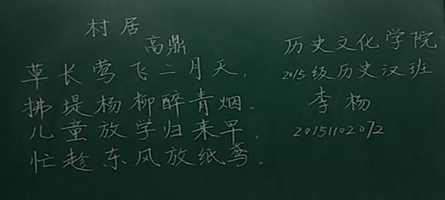 村居
高鼎
草长莺飞二月天，
拂堤杨柳醉青烟。
儿童放学归来早，
忙趁东风放纸鸢。
历史文化学院
2015级历史汉班
李杨
20151102072